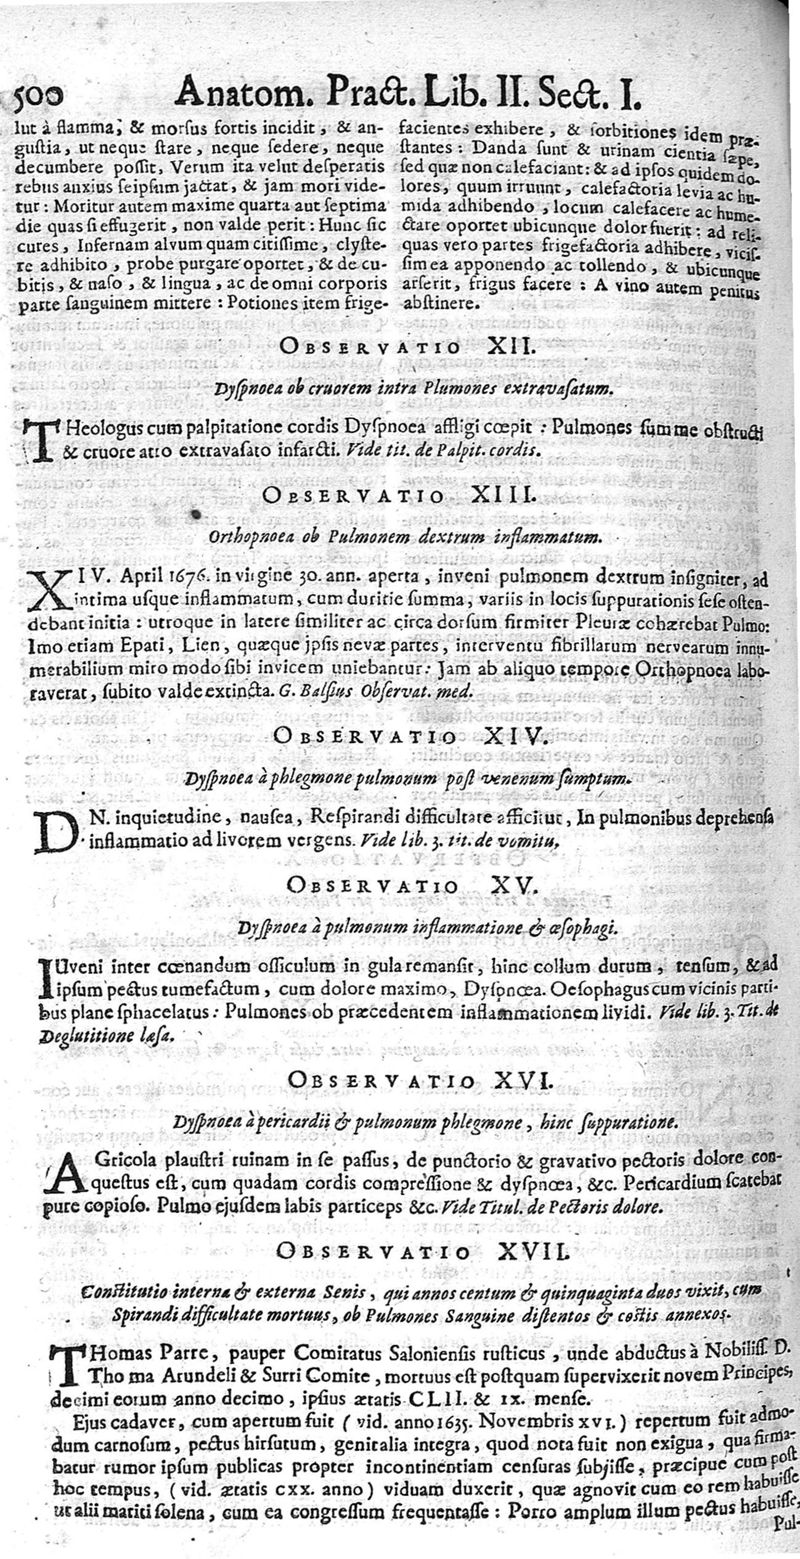 500 Anatom. Pract. Lib. II. Sect. I.
lut à flamma, & morsus fortis incidit, & an-
gustia, ut neque stare, neque sedere, neque
decumbere possit, Verum ita velut desperatis
rebus anxius seipsum jactat, & jam mori vide-
tur: Moritur autem maxime quarta aut septima
die quas si effugerit, non valde perit: Hunc sic
cures, Infernam alvum quam citissime, clyste-
re adhibito, probe purgare oportet, & de cu-
bitis, & naso, & lingua, ac de omni corporis
parte sanguinem mittere: Potiones item frige-
facientes exhibere, & sorbitiones idem præ-
stantes: Danda sunt & urinam cientia sæpe,
sed quæ non calefaciant: & ad ipsos quidem do-
lores, quum irruunt, calefactoria levia ac hu-
mida adhibendo, locum calefacere ac hume-
ctare oportet ubicunque dolor fuerit: ad reli-
quas vero partes frigefactoria adhibere, vicis-
sim ea apponendo ac tollendo, & ubicunque
arserit, frigus facere: A vino autem penitus
abstinere.
OBSERVATIO XII.
Dyspnoea ob cruorem intra Plumones extravasatum.
THeologus cum palpitatione cordis Dyspnoea affligi cœpit: Pulmones summe obstructi
& cruore atro extravasato infarcti. Vide tit. de Palpit. cordis.
OBSERVATIO XIII.
Orthopnoea ob Pulmonem dextrum inflammatum.
XIV. April 1676. in virgine 30. ann. aperta, inveni pulmonem dextrum insigniter, ad
intima usque inflammatum, cum duritie summa, variis in locis suppurationis sese osten-
debant initia: utroque in latere similiter ac circa dorsum firmiter Pleuræ cohærebat Pulmo:
Imo etiam Epati, Lien, quæque ipsis nevæ partes, interventu fibrillarum nervearum innu-
merabilium miro modo sibi invicem uniebantur: Jam ab aliquo tempore Orthopnoea labo-
raverat, subito valde extincta. G. Balsius Observat. med.
OBSERVATIO XIV.
Dyspnoea à phlegmone pulmonum post venenum sumptum.
DN. inquietudine, nausea, Respirandi difficultate afficitur, In pulmonibus deprehensa
inflammatio ad livorem vergens. Vide lib. 3. tit. de vomitu.
OBSERVATIO XV.
Dyspnoea à pulmonum inflammatione & œsophagi.
IUveni inter cœnandum officulum in gula remansit, hinc collum durum, tensum, & ad
ipsum pectus tumefactum, cum dolore maximo, Dyspnœa. Oesophagus cum vicinis parti-
bus plane sphacelatus: Pulmones ob præcedentem inflammationem lividi. Vide lib. 3. Tit. de
Deglutitione læsa.
OBSERVATIO XVI.
Dyspnoea à pericardii & pulmonum phlegmone, hinc suppuratione.
AGricola plaustri ruinam in se passus, de punctorio & gravativo pectoris dolore con-
questus est, cum quadam cordis compressione & dyspnœa, &c. Pericardium scatebat
pure copioso. Pulmo ejusdem labis particeps &c. Vide Titul. de Pectoris dolore.
OBSERVATIO XVII.
Constitutio interna & externa Senis, qui annos centum & quinquaginta duos vixit, cum
Spirandi difficultate mortuus, ob Pulmones Sanguine distentos & costis annexos.
THomas Parre, pauper Comitatus Saloniensis rusticus, unde abductus à Nobiliss. D.
Thoma Arundeli & Surri Comite, mortuus est postquam supervixerit novem Principes,
decimi eorum anno decimo, ipsius ætatis CLII. & IX. mense.
Ejus cadaver, cum apertum fuit (vid. anno 1635. Novembris XVI.) repertum fuit admo-
dum carnosum, pectus hirsutum, genitalia integra, quod nota fuit non exigua, qua firma-
batur rumor ipsum publicas propter incontinentiam censuras subjisse, præcipue cum post
hoc tempus, (vid. ætatis CXX. anno) viduam duxerit, quæ agnovit cum eo rem habuisse
ut alii mariti solena, cum ea congressum frequentasse: Porro amplum illum pectus habuisse,
Pul-